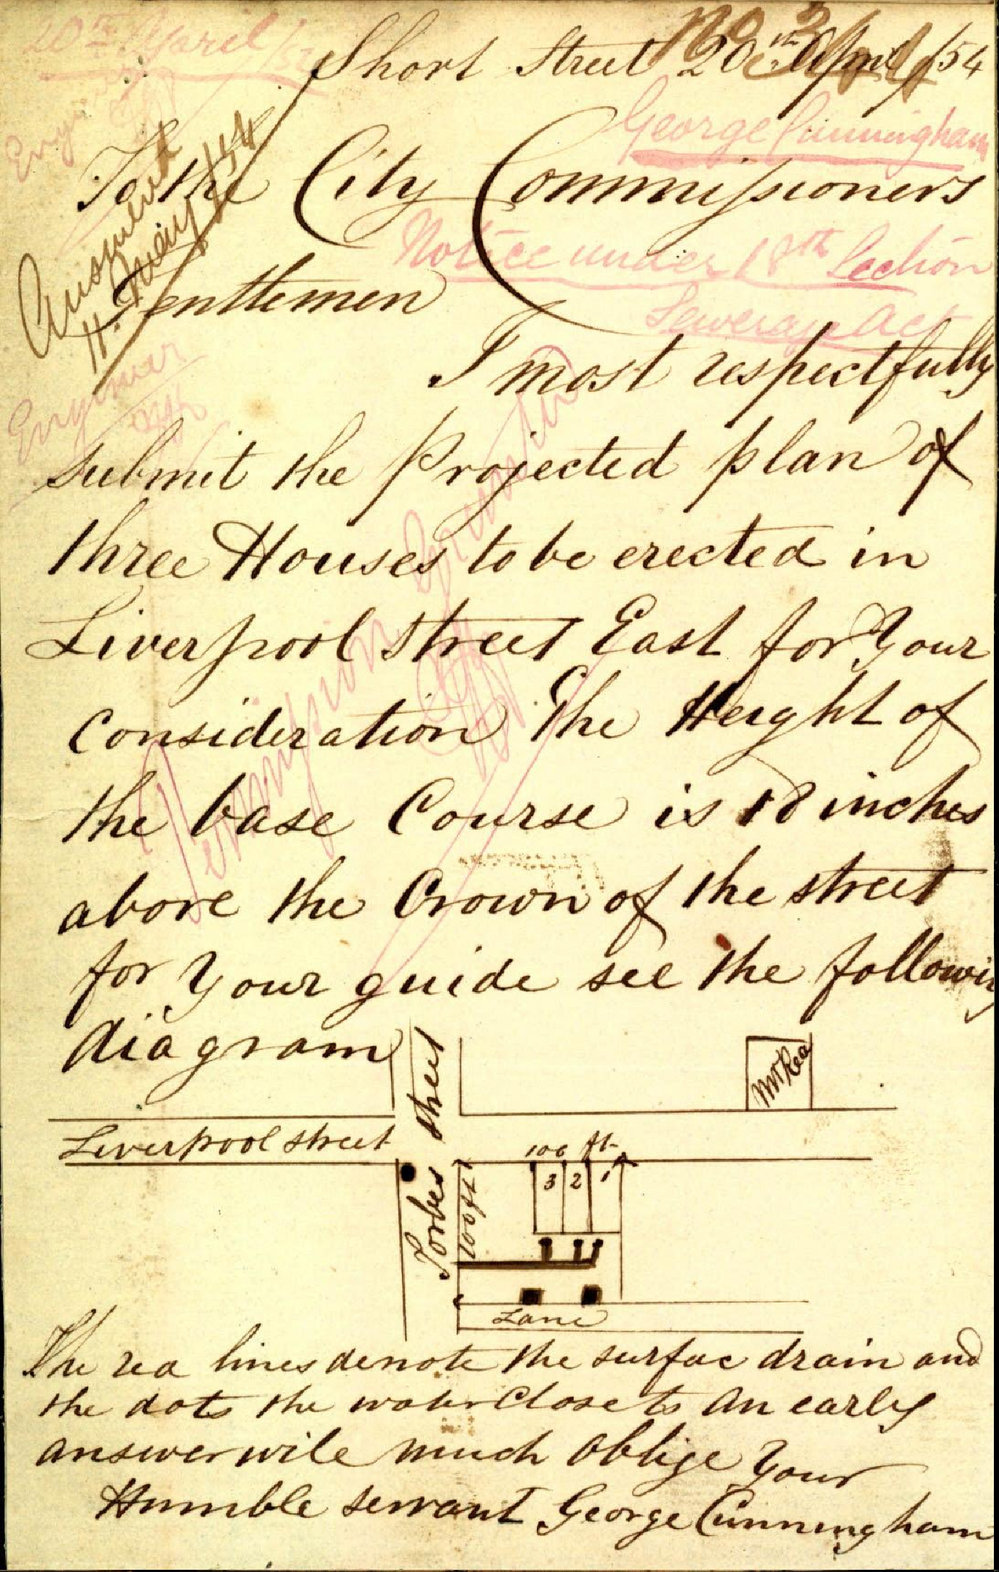 20th April/54
No 3
Short Street 20th April/54
George Cunningham
To the City Commissioners
Notice under 18th Section
Sewerage Act
Gentlemen
Engineer
I most respectfully
submit the Projected plan of
three Houses to be erected in
Liverpool Street East for Your
Consideration The Height of
the base Course is 18 inches
above the Crown of the street
for Your guide see the followin
diagram
Forbes street
Mr Rea
Liverpool street
100 ft
3 2 1
100 ft
Lane
The rea lines denote the surfac drain and
the dots the water Closets An early
answer wile much Oblige Your
Humble servant George Cunningham